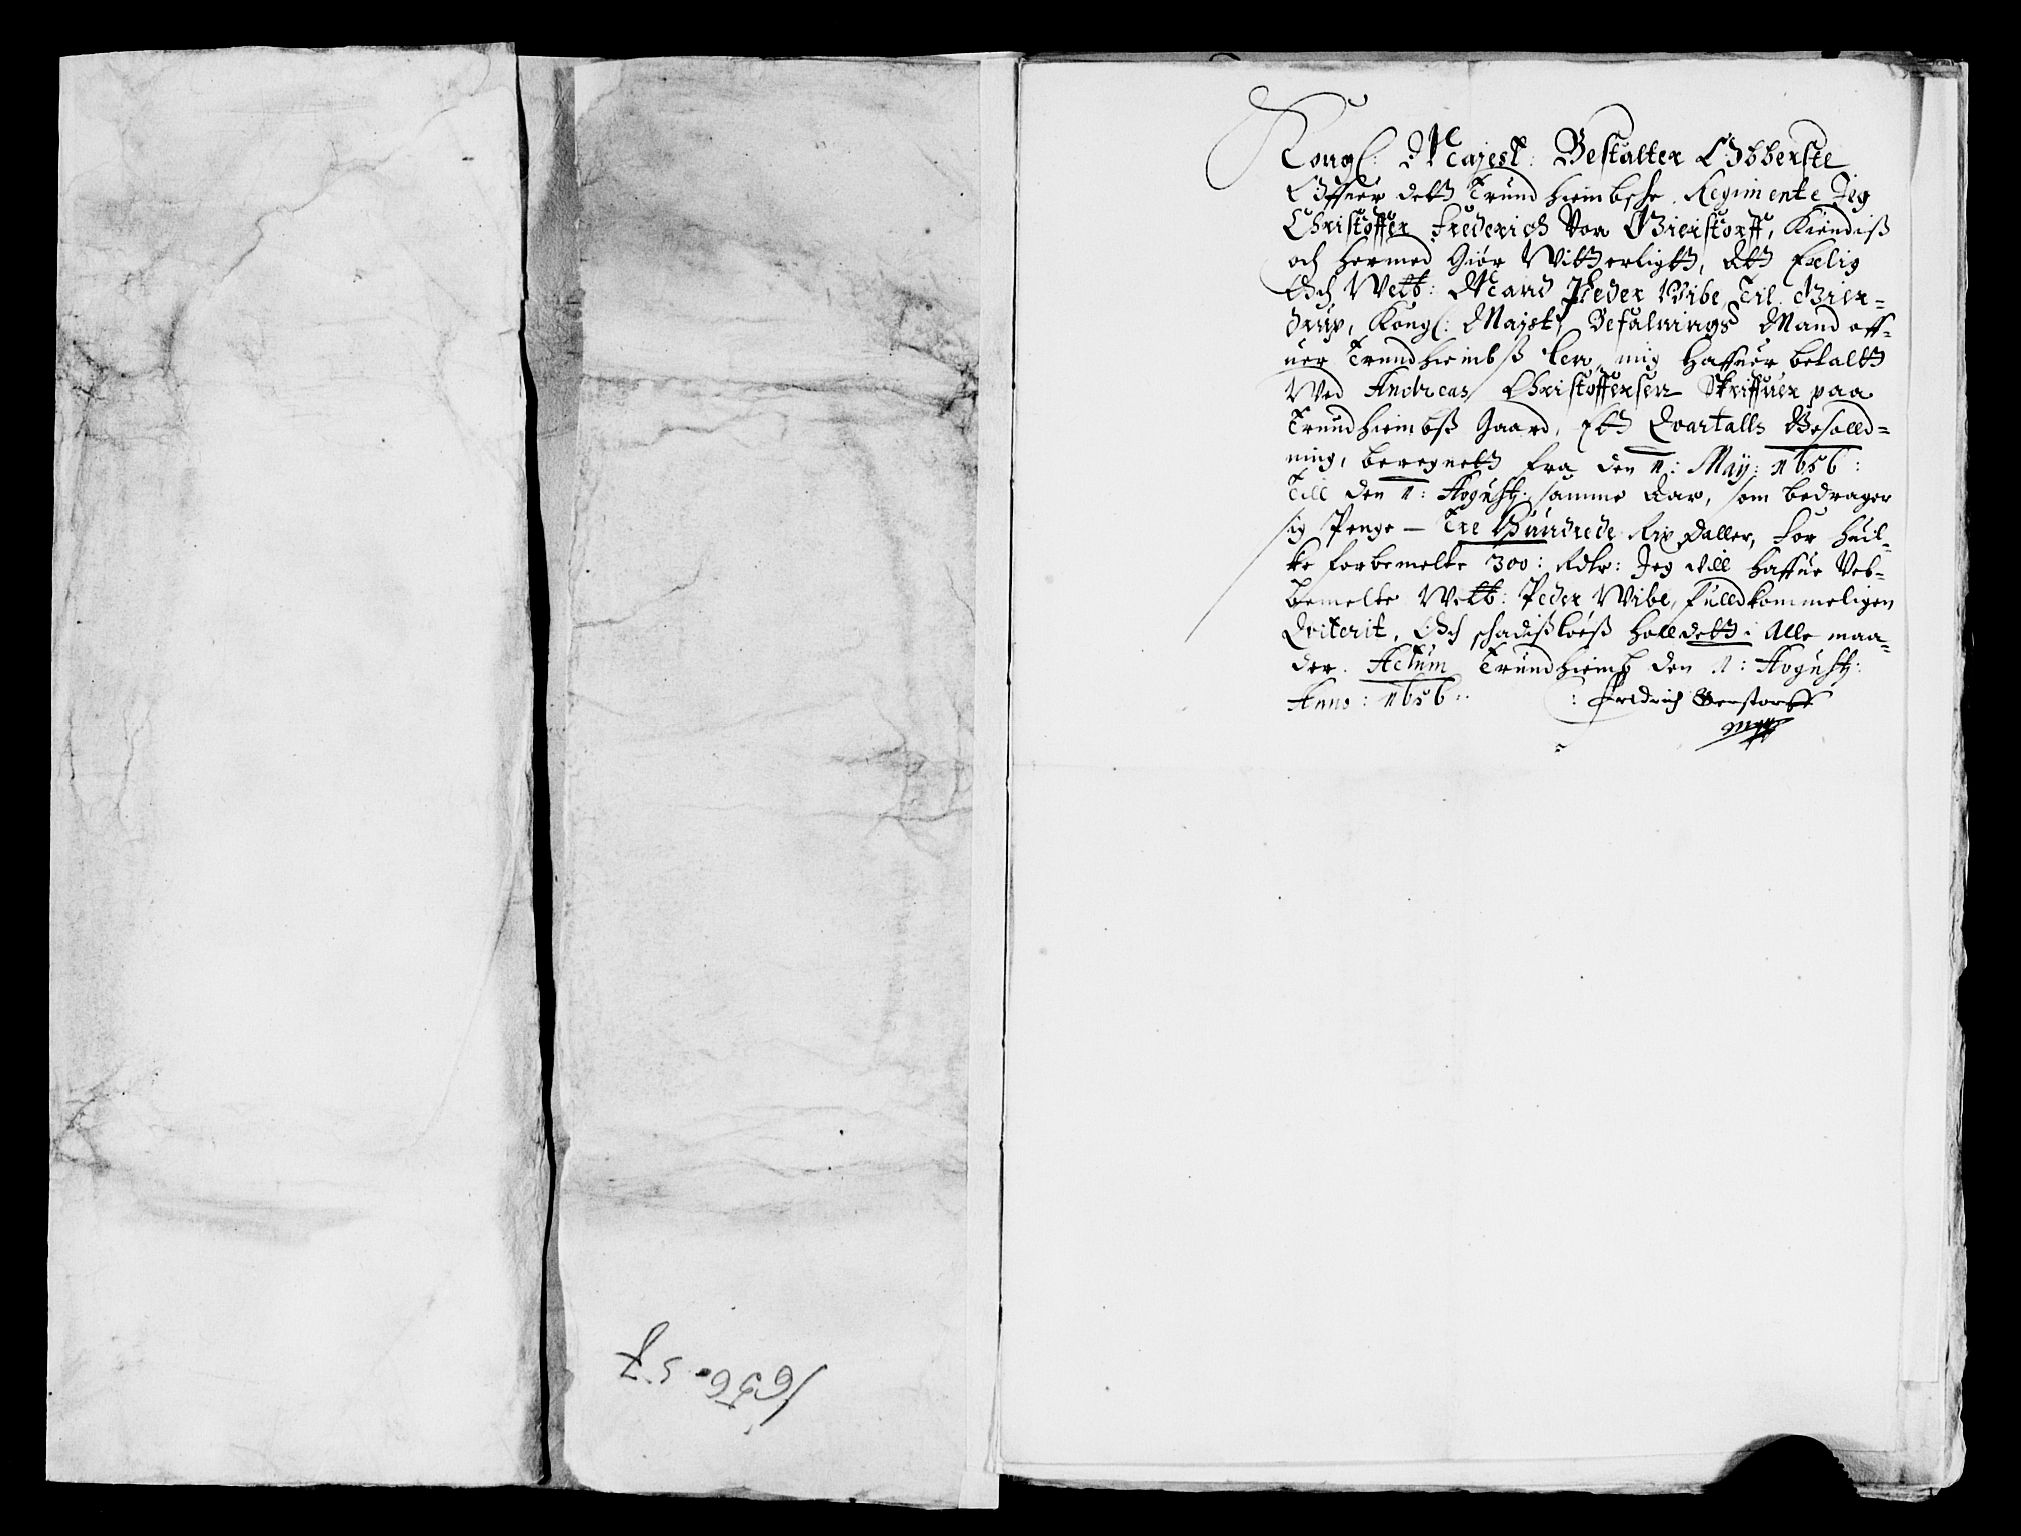 1656. 57
Kongl: Mayest: Bestalter Obberste
Offuer dett Trundhiembsche Regimente Jeg
Christoffer Frederich Von Gierstorff, Kiendiß
och hermed Giør Witterligtt, Att Erlig
Och Welb: Mand Peder Wibe Til Gier-
drup, Kongl: Mayst: Befalnings Mand off-
uer Trundhiembß Len, mig Haffuer betaltt
Wed Andreas Christoffersen Skriffuer paa
Trundhiembß Gaard, Ett Qvartalls Besolld-
ning, beregnett fra den 1: May: 1656:
Till den 1: Avgusty: samme Aar, som bedrager
sig Penge - Tre Hundrede Rix Daller, for huil-
ke forbemelte 300: Rdlr: Jeg vill haffue Vel-
bemelte Welb: Peder Wibe, Fulldkommeligen
Qviterit, Och schadißløeß holldett i Alle maa-
der. Actum Trundhiemb den 1: Avgusty:
Anno: 1656:
Fredrich Gerstorff
mpp